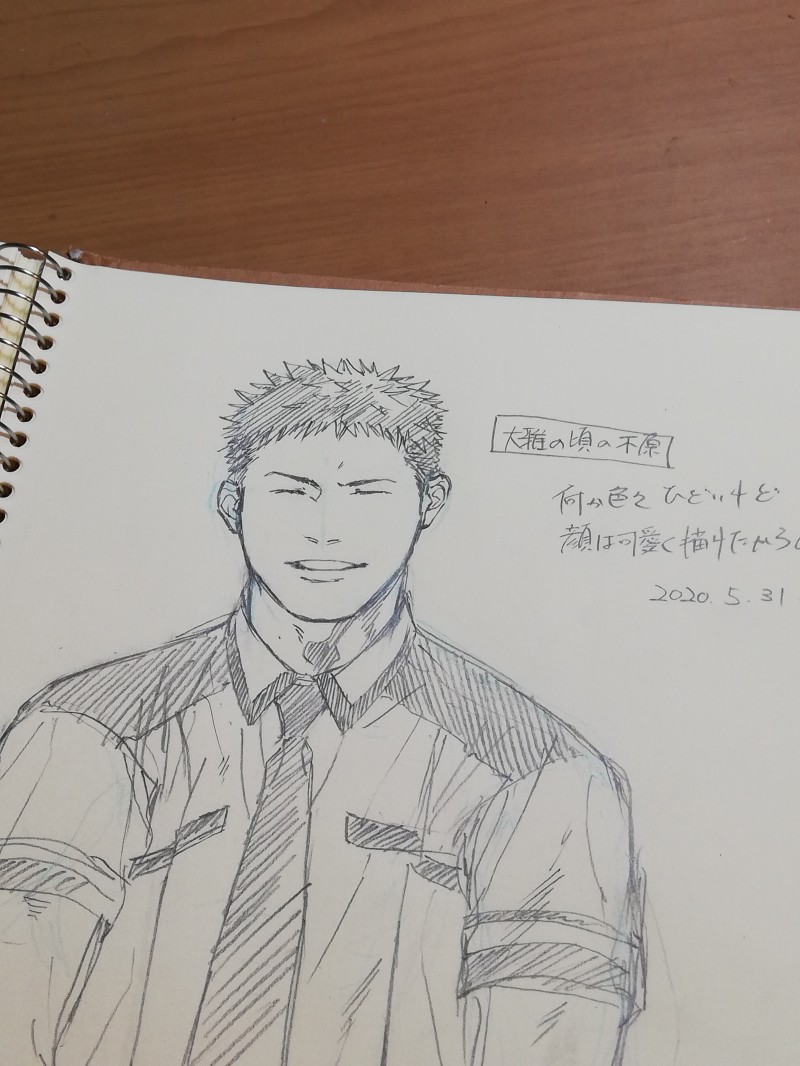 大雅の頃の不原
何か色々ひどいけど
顔は可愛く描けたやろ
2020.5.31